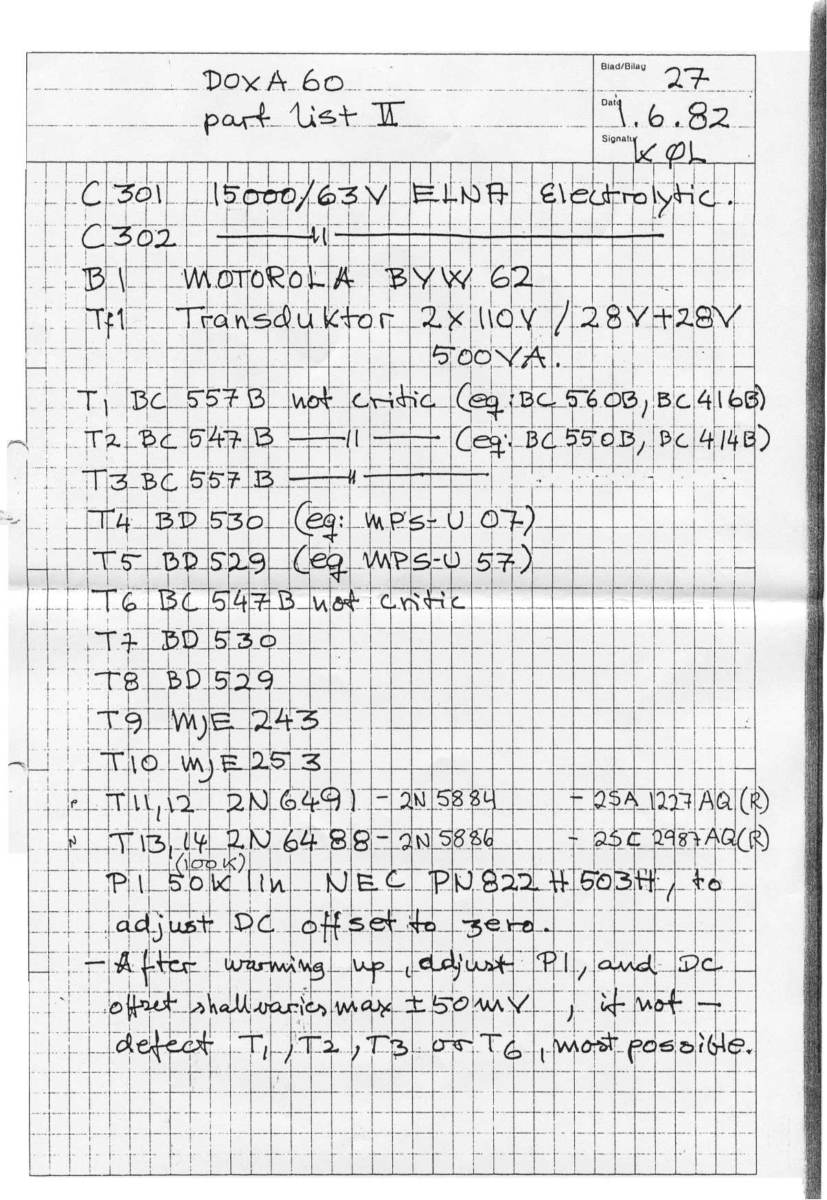 DOXA 60
part list II
Blad/Bilag 27
Dato 1.6.82
Signatur KØL
C 301 15000/63V ELNA Electrolytic.
C 302 —————〃—————
B1 MOTOROLA BYW 62
Tf1 Transduktor 2x110V / 28V+28V
500VA.
T1 BC 557B not critic (eq: BC 560B, BC 416B)
T2 BC 547B ——〃—— (eq: BC 550B, BC 414B)
T3 BC 557B ——〃——
T4 BD 530 (eq: MPS-U 07)
T5 BD 529 (eq MPS-U 57)
T6 BC 547B not critic
T7 BD 530
T8 BD 529
T9 MJE 243
T10 MJE 253
P T11,12 2N 6491 - 2N 5884 - 2SA 1227 AQ (R)
N T13,14 2N 6488 - 2N 5886 - 2SC 2987 AQ (R)
(100K)
P1 50K lin NEC PN822H503H, to
adjust DC offset to zero.
- After warming up, adjust P1, and DC
offset shall varies max ±50mV, if not -
defect T1, T2, T3 or T6, most possible.